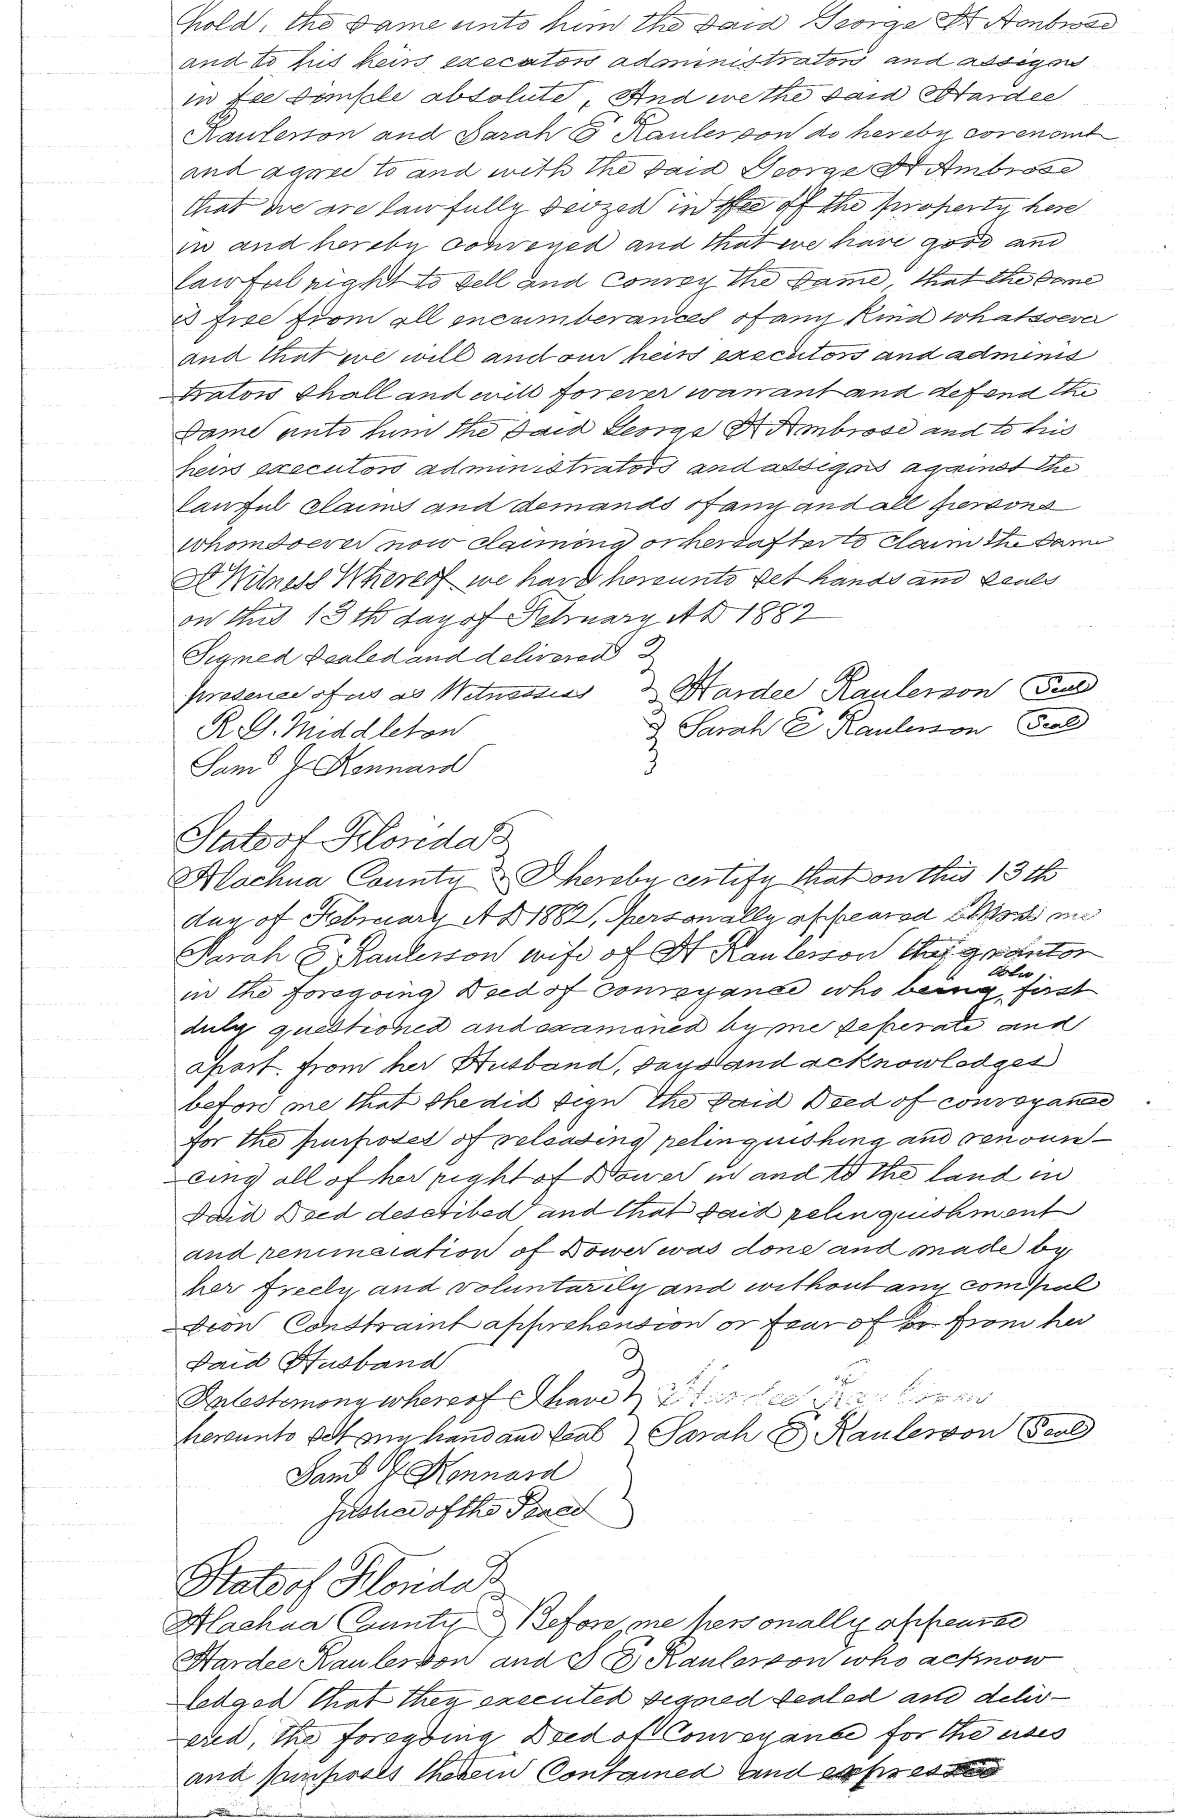 hold, the same unto him the said George H Ambrose
and to his heirs executors administrators and assigns
in fee simple absolute, And we the said Hardee
Raulerson and Sarah E Raulerson do hereby covenant
and agree to and with the said George H Ambrose
that we are lawfully seized in fee of the property here
in and hereby conveyed and that we have good and
lawful right to sell and convey the same, that the same
is free from all encumberances of any kind whatsoever
and that we will and our heirs executors and adminis
trators shall and will forever warrant and defend the
same unto him the said George H Ambrose and to his
heirs executors administrators and assigns against the
lawful claims and demands of any and all persons
whomsoever now claiming or hereafter to claim the same
Witness Whereof we have hereunto set hands and seals
on this 13th day of February AD 1882
Signed sealed and delivered
presence of us as Witnesses Hardee Raulerson Seal
R. G. Middleton Sarah E Raulerson Seal
Saml J Kennard
State of Florida
Alachua County I hereby certify that on this 13th
day of February AD 1882, personally appeared before me
Sarah E Raulerson wife of H Raulerson the grantor
in the foregoing Deed of conveyance who being first
duly questioned and examined by me seperate and
apart from her Husband, says and acknowledges
before me that she did sign the said Deed of conveyance
for the purposes of releasing relinquishing and renoun-
cing all of her right of Dower in and to the land in
said Deed described and that said relinquishment
and renunciation of Dower was done and made by
her freely and voluntarily and without any compul
sion Constraint apprehension or fear of or from her
said Husband
In testimony whereof I have Hardee Raulerson
hereunto set my hand and seal Sarah E Raulerson Seal
Saml J Kennard
Justice of the Peace
State of Florida
Alachua County Before me personally appeared
Hardee Raulerson and S E Raulerson who acknow
ledged that they executed signed sealed and deliv-
ered, the foregoing Deed of Conveyance for the uses
and purposes therein Contained and expressed